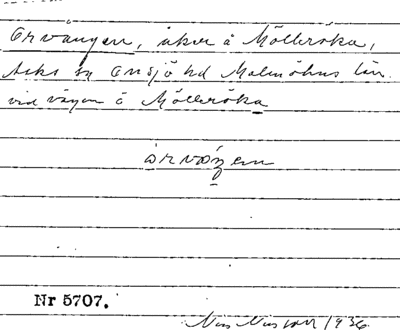 Örvången, åker å Mölleröka,
Asks sn Onsjö hd Malmöhus län.
vid vägen å Mölleröka
Nr 5707.
Nils Nilsson 1936